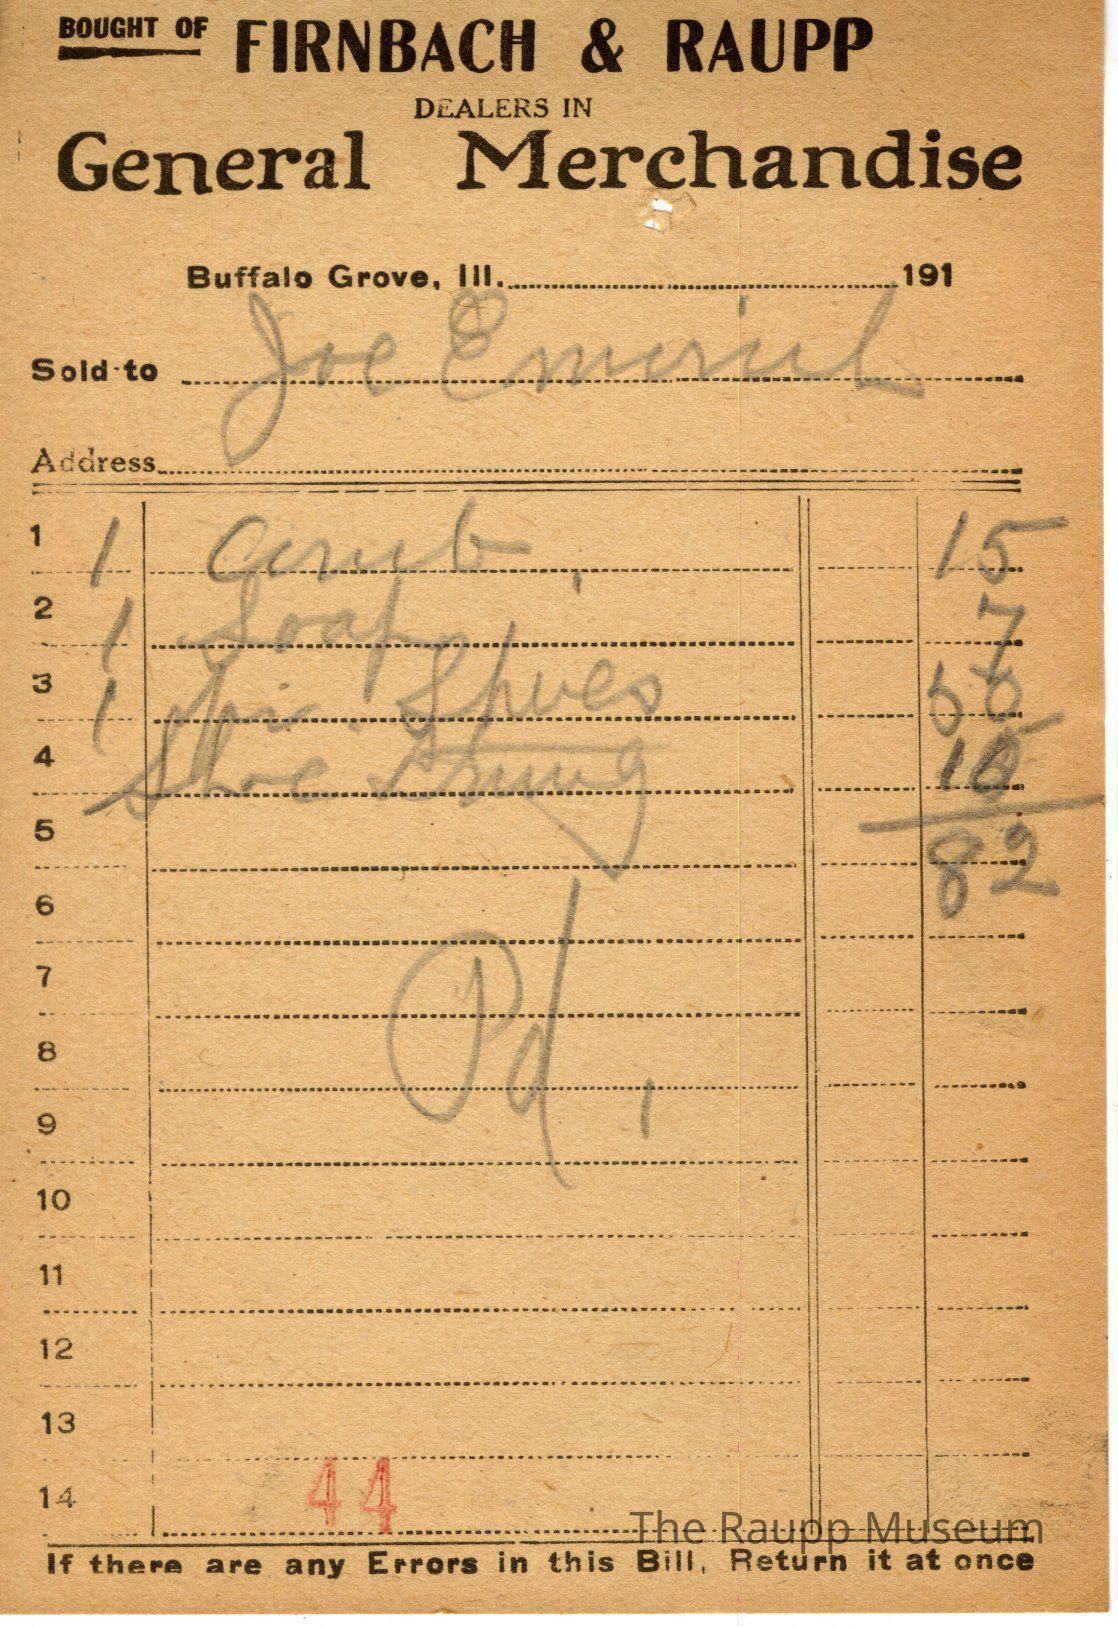 BOUGHT OF FIRNBACH & RAUPP
DEALERS IN
General Merchandise
Buffalo Grove, Ill. 191
Sold to Joe Emerich
Address
1 1 Comb 15
2 1 Soap 7
3 1 Shoes 50
4 Shoe 10
5 82
6
7 Pd,
8
9
10
11
12
13
14 44
The Raupp Museum
If there are any Errors in this Bill, Return it at once